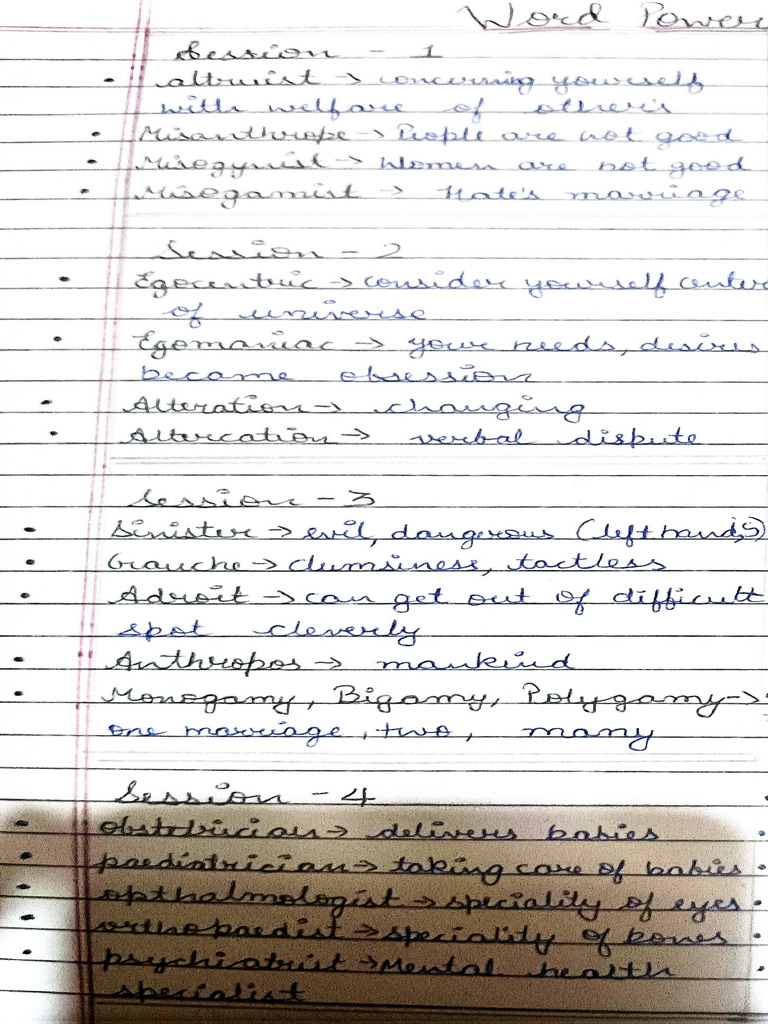 Word Power
Session - 1
altruist → concerning yourself
with welfare of other's
Misanthrope → People are not good
Misogynist → Women are not good
Misogamist → Hate's marriage
Session - 2
Egocentric → consider yourself center
of universe
Egomaniac → your needs, desires
became obsession
Alteration → changing
Altercation → verbal dispute
Session - 3
Sinister → evil, dangerous (left hand;s)
Gauche → clumsiness, tactless
Adroit → can get out of difficult
spot cleverly
Anthropos → mankind
Monogamy, Bigamy, Polygamy →
one marriage, two, many
Session - 4
obstetrician → delivers babies
paediatrician → taking care of babies
opthalmologist → speciality of eyes
orthopaedist → speciality of bones
psychiatrist → Mental health
specialist